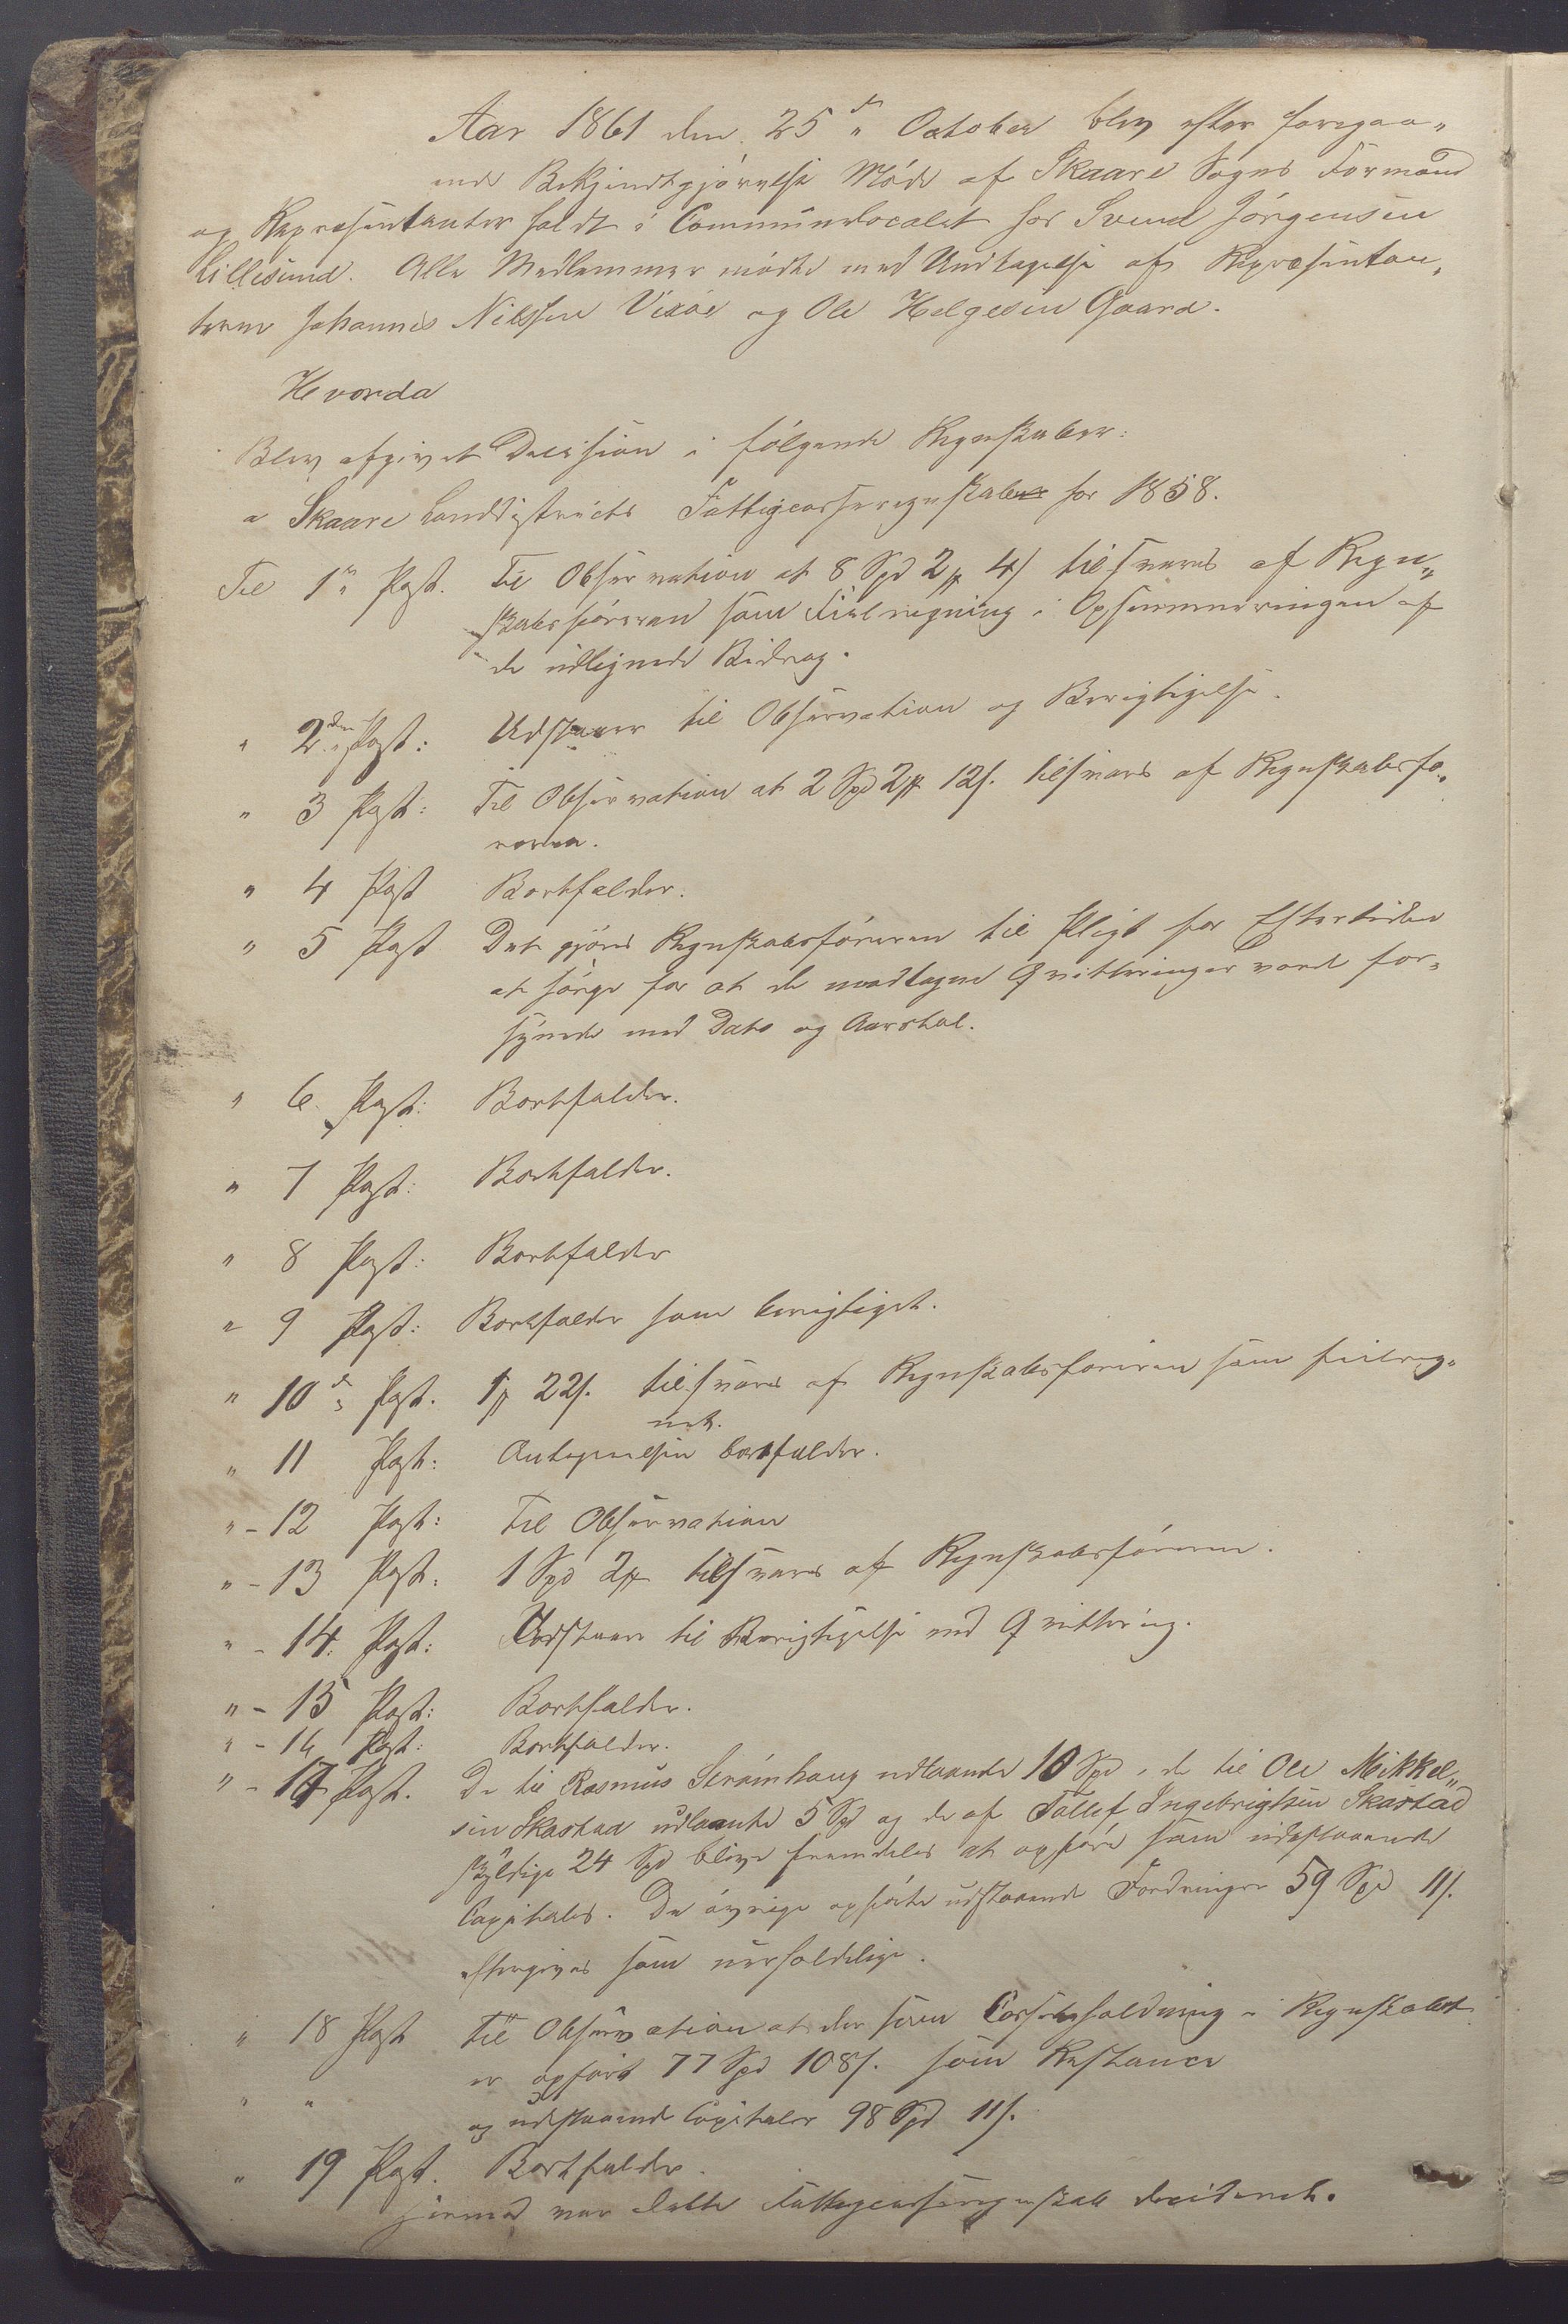 Aar 1861 den 25de October blev efter foregaa„
ende Bekjendtgjörelse Möde af Skaare Sogns Formænd
og Repræsentanter holdt i Communelocalet hos Svend Jörgensen
Lillesund. Alle Medlemmer mödte med Undtagelse af Repræsentan„
terne Johannes Nilssen Vixöe og Ole Helgesen Gaard.
Hvorda
Blev afgivet Decision i fölgende Regnskaber:
a Skaare Landdistricts Fattigcasseregnskab for 1858.
Til 1ste Post. Til Observation at 8 Spd 2 # 4 s tilsvares af Regn„
skabsföreren som Feilregning i Opsummeringen af
de udlignede Bidrag.
" 2den Post: Udstaaer til Observation og Berigtigelse.
" 3 Post: Til Observation at 2 Spd 2 # 12 s. tilsvares af Regnskabsfö„
reren.
" 4 Post Bortfalder.
" 5 Post Det gjöres Regnskabsföreren til Pligt for Eftertiden
at sörge for at de modtagne Qvitteringer vorde for„
synede med Dato og Aarstal.
" 6. Post: Bortfalder.
" 7 Post: Bortfalder.
" 8 Post: Bortfalder
" 9 Post: Bortfalder som berigtiget.
" 10de Post. 1 # 22 s. tilsvares af Regnskabsföreren som feilreg„
net.
" 11 Post: Antegnelsen bortfalder.
" - 12 Post: Til Observation
" - 13 Post: 1 Spd 2 # tilsvares af Regnskabsföreren.
" - 14. Post: Udstaaer til Berigtigelse med Qvittering.
" - 15 Post: Bortfalder.
" - 16 Post: Bortfalder.
" - 17 Post. De til Rasmus udlaante 10 Spd, de til Ole Mikkel„
sen Skastad udlaante 5 Spd og de af Tollef Ingebrigtsen Skastad
skyldige 24 Spd blive fremdeles at opföre som udestaaende
Capitaler. De övrige opförte udstaaende Fordringer 59 Spd 11 s.
eftergives som uerholdelige.
" 18 Post Til Observation at der som Cassebeholdning i Regnskabet
er opfört 77 Spd 108 s. som Restance
" " og udestaaende Capitaler 98 Spd 11 s.
" 19 Post. Bortfalder.
Hermed var dette Fattigcasseregnskab decideret.